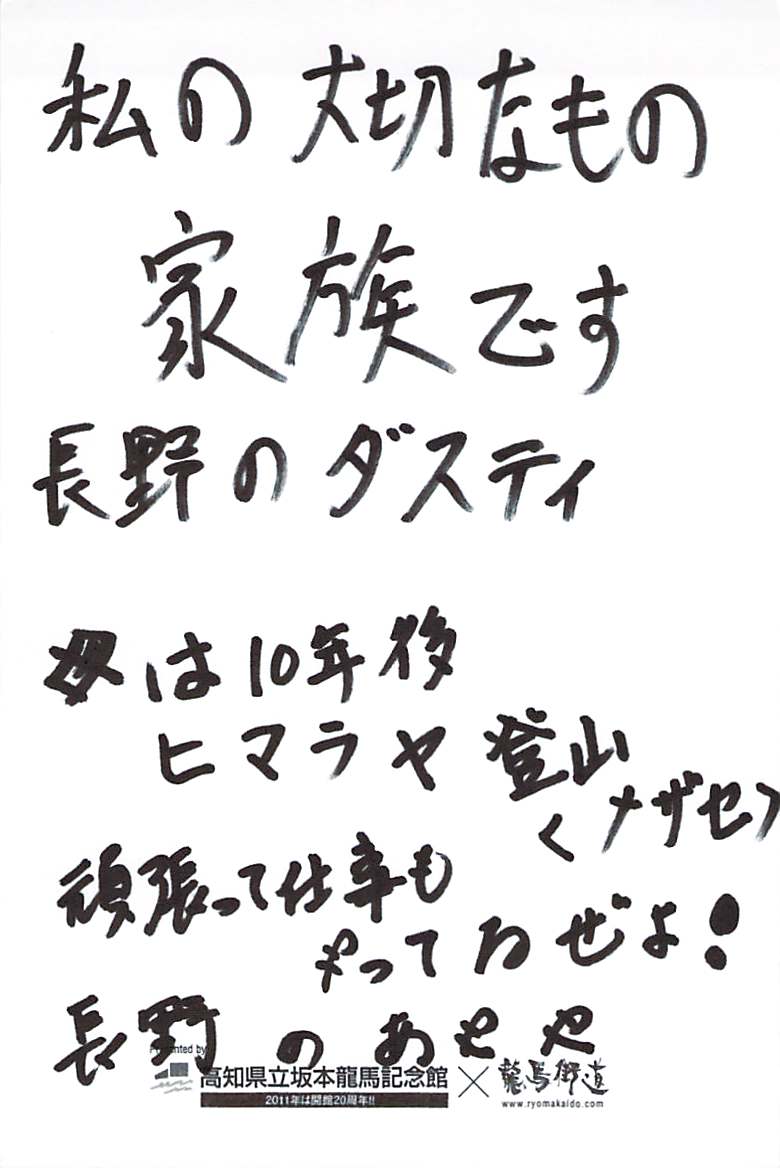 私の大切なもの
家族です
長野のダスティ
母は10年後
ヒマラヤ登山
<メザセ>
頑張って仕事も
やってるぜよ!
長野のあせや
Presented by
高知県立坂本龍馬記念館×龍馬街道
2011年は開館20周年!! www.ryomakaido.com